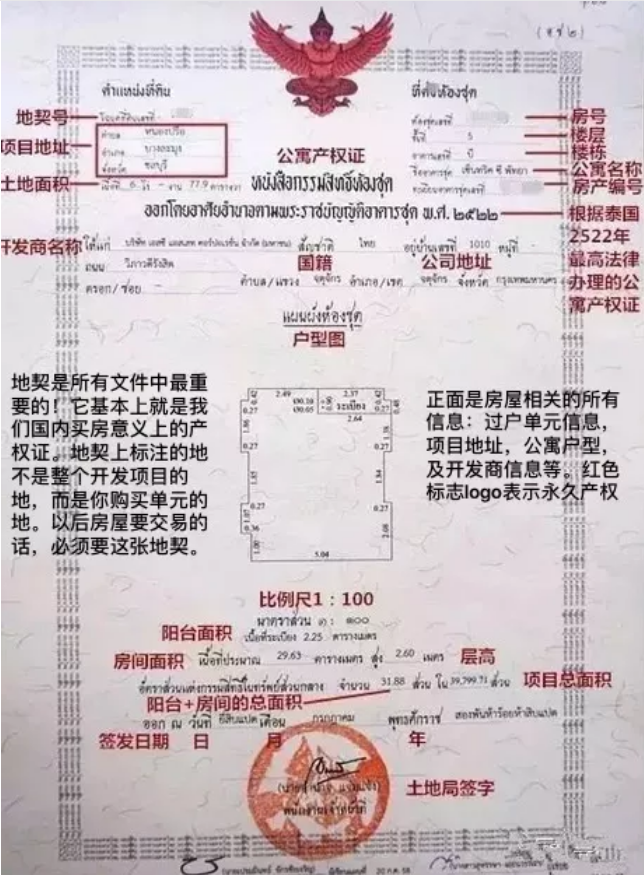 (อ.ช.๒)
ตำแหน่งที่ดิน
ที่ตั้งห้องชุด
地契号
โฉนดที่ดินเลขที่
ห้องชุดเลขที่
房号
项目地址
ตำบล หนองปรือ
ชั้นที่ 5
楼层
อำเภอ บางละมุง
อาคารเลขที่ บี
楼栋
จังหวัด ชลบุรี
公寓产权证
ชื่ออาคารชุด เซ็นทริค ซี พัทยา
公寓名称
土地面积
เนื้อที่ 6 ไร่ - งาน 77.9 ตารางวา
ทะเบียนอาคารชุดเลขที่
房产编号
หนังสือกรรมสิทธิ์ห้องชุด
ออกโดยอาศัยอำนาจตามพระราชบัญญัติอาคารชุด พ.ศ. ๒๕๒๒
根据泰国
2522年
最高法律
办理的公
寓产权证
开发商名称
ให้แก่ บริษัท เอสซี แอสเสท คอร์ปอเรชั่น จำกัด (มหาชน) สัญชาติ ไทย อยู่บ้านเลขที่ 1010 หมู่ที่ -
国籍
公司地址
ถนน วิภาวดีรังสิต
ตรอก/ซอย - ตำบล/แขวง จตุจักร อำเภอ/เขต จตุจักร จังหวัด กรุงเทพมหานคร
แผนผังห้องชุด
户型图
地契是所有文件中最重
要的！它基本上就是我
们国内买房意义上的产
权证。地契上标注的地
不是整个开发项目的
地，而是你购买单元的
地。以后房屋要交易的
话，必须要这张地契。
2.49
2.37
0.42
0.42
0.27
0.27
ระเบียง
2.64
1.86
0.27
0.27
1.85
1.84
0.27
0.27
0.36
2.08
1.00
5.04
正面是房屋相关的所有
信息：过户单元信息，
项目地址，公寓户型，
及开发商信息等。红色
标志logo表示永久产权
比例尺1：100
มาตราส่วน ๑ : ๑๐๐
阳台面积
เนื้อที่ระเบียง 2.25 ตารางเมตร
房间面积
เนื้อที่ประมาณ 29.63 ตารางเมตร สูง 2.60 เมตร
层高
อัตราส่วนแห่งกรรมสิทธิ์ในทรัพย์ส่วนกลาง จำนวน 31.88 ส่วน ใน 39,799.71 ส่วน
项目总面积
阳台+房间的总面积
ออก ณ วันที่ ยี่สิบแปด เดือน กรกฎาคม พุทธศักราช สองพันห้าร้อยห้าสิบแปด
签发日期 日 月 年
土地局签字
พนักงานเจ้าหน้าที่